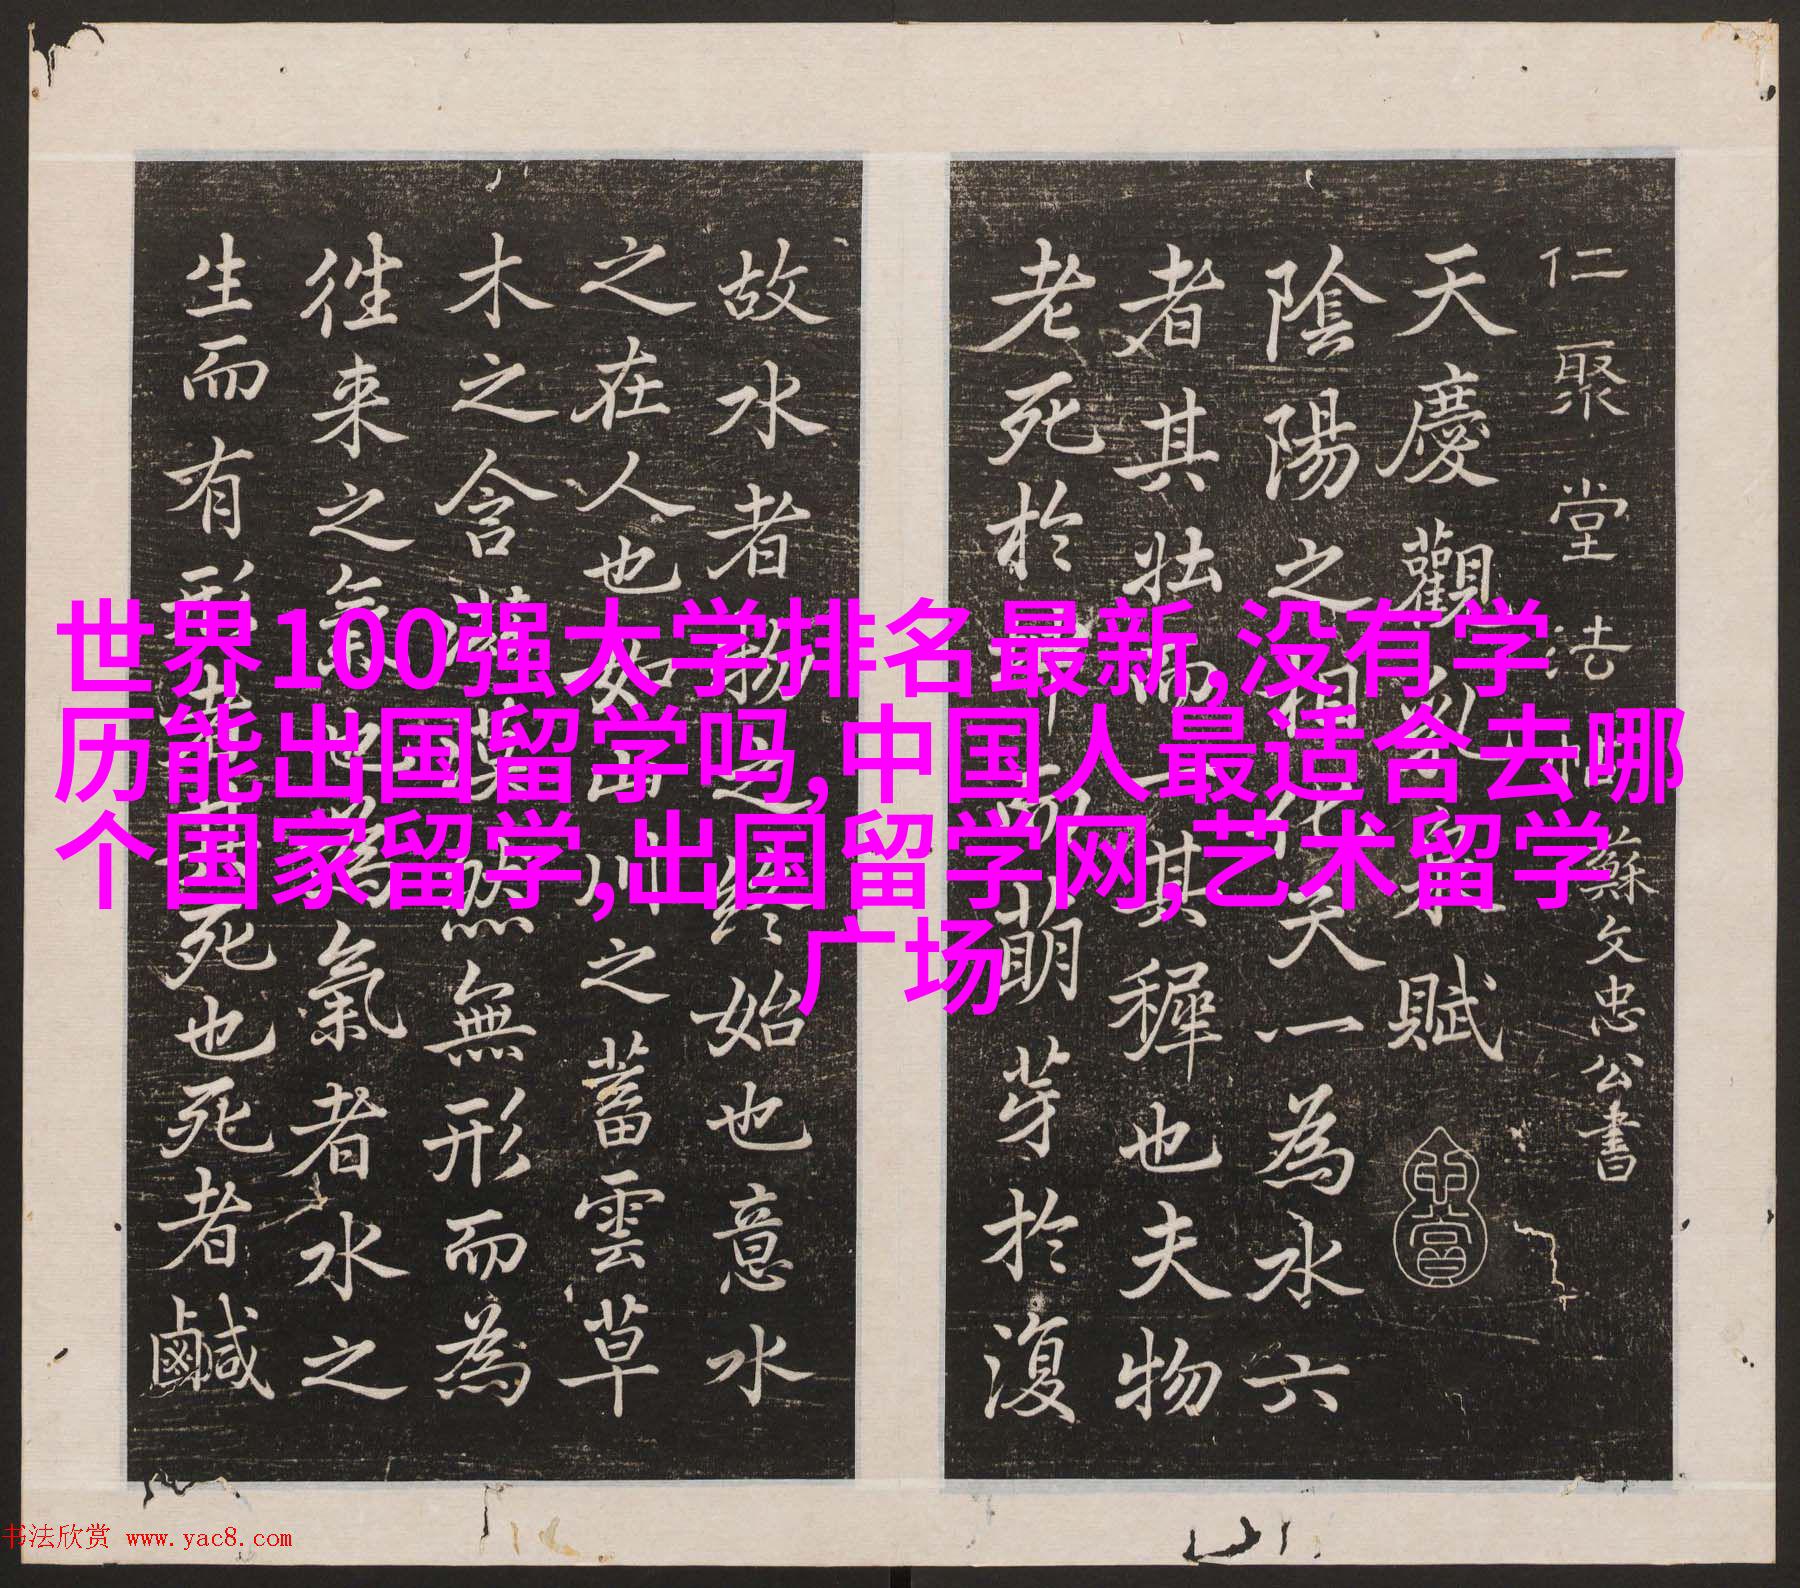 世界100强大学排名最新,没有学
历能出国留学吗,中国人最适合去哪
个国家留学,出国留学网,艺术留学
广场
仁聚堂法 蘇文忠公書
天慶觀乳泉賦
陰陽之相化天一為水六
者其壯而一其穉也夫物
老死於萌芽於復
故水者物之終始也意水
之在人也如山川之蓄雲草
木之含滋漠然無形而為
徃来之氣也為氣者水之
生而有形死也死者鹹
书法欣赏 www.yac8.com